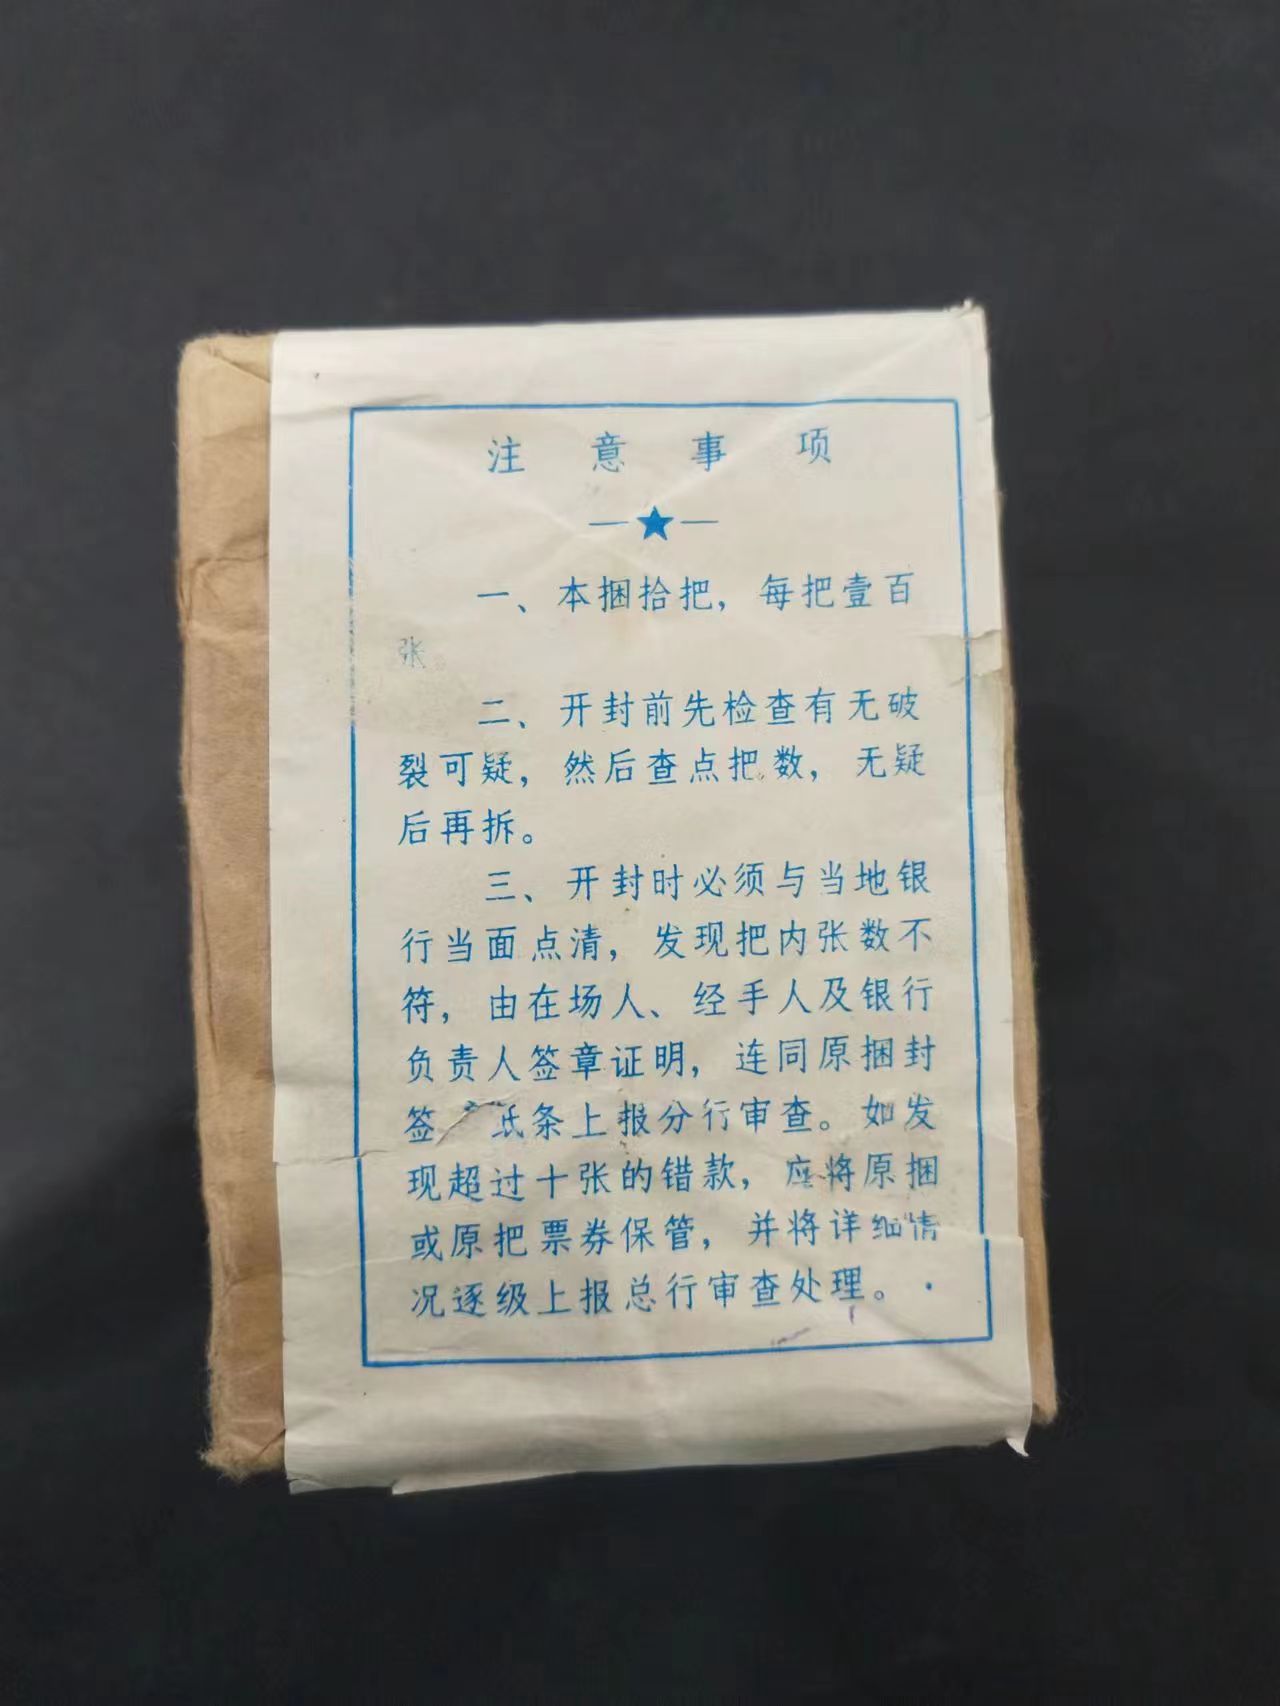 注意事项
一、本捆拾把，每把壹百
张。
二、开封前先检查有无破
裂可疑，然后查点把数，无疑
后再拆。
三、开封时必须与当地银
行当面点清，发现把内张数不
符，由在场人、经手人及银行
负责人签章证明，连同原捆封
签 纸条上报分行审查。如发
现超过十张的错款，应将原捆
或原把票券保管，并将详细情
况逐级上报总行审查处理。